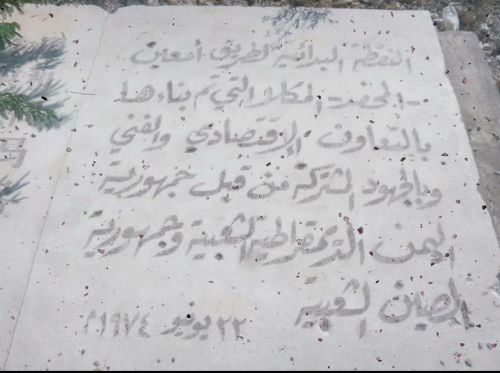 النقطة البدائية لطريق أمعين
-المحفد- المكلا التي تم بناءها
بالتعاون الاقتصادي والفني
وبالجهود المشتركة من قبل جمهورية
اليمن الديمقراطية الشعبية وجمهورية
الصين الشعبية
٢٢ يونيو ١٩٧٤م